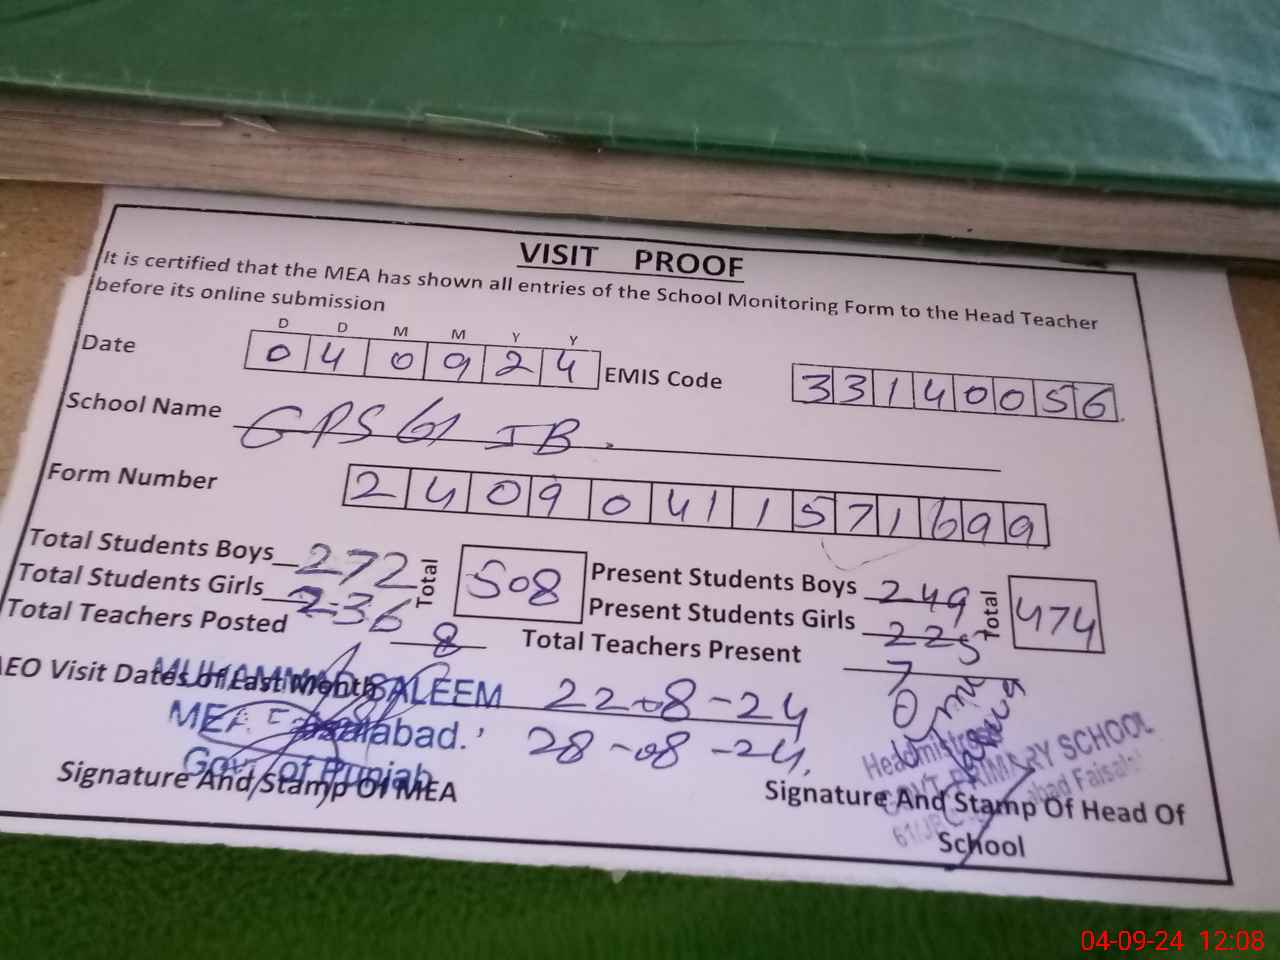 VISIT PROOF
It is certified that the MEA has shown all entries of the School Monitoring Form to the Head Teacher
before its online submission
D D M M Y Y
Date 0 4 0 9 2 4 EMIS Code 3 3 1 4 0 0 5 6
School Name GPS 61 JB.
Form Number 2 4 0 9 0 4 1 1 5 7 1 6 9 9
Total Students Boys 272 Total 508 Present Students Boys 249 Total 474
Total Students Girls 236 Present Students Girls 225
Total Teachers Posted 8 Total Teachers Present 7
AEO Visit Dates of Last Month 22-08-24
28-08-24.
MUHAMMAD SALEEM
MEA Faisalabad.
Govt. of Punjab
Signature And Stamp Of MEA
Headmistress
GOVT. PRIMARY SCHOOL
61/JB
Signature And Stamp Of Head Of
School
04-09-24 12:08